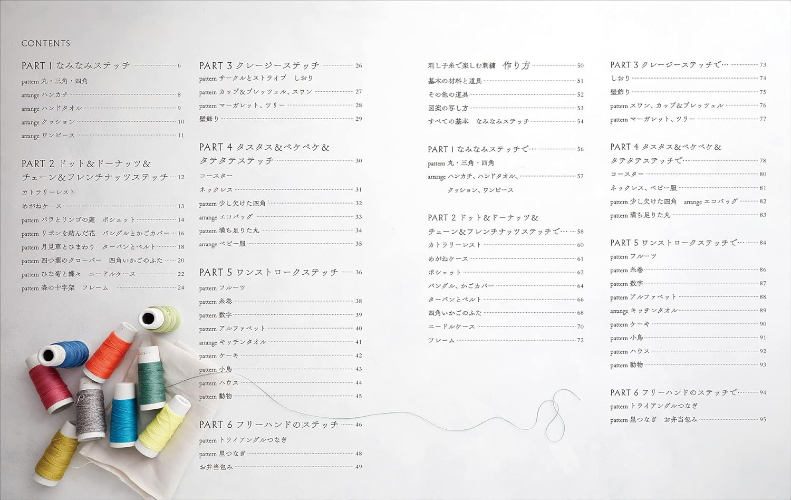 CONTENTS
PART 1 なみなみステッチ 6
pattern 丸・三角・四角
arrange ハンカチ 8
arrange ハンドタオル 9
arrange クッション 10
arrange ワンピース 11
PART 2 ドット＆ドーナッツ＆
チェーン＆フレンチナッツステッチ 12
カトラリーレスト
めがねケース 13
pattern バラとリンゴの蓮 ポシェット 14
pattern リボンを結んだ花 バングルとかごカバー 16
pattern 月見草とひまわり ターバンとベルト 18
pattern 四つ葉のクローバー 四角いかごのふた 20
pattern ひな菊と蝶々 ニードルケース 22
pattern 森の十字架 フレーム 24
PART 3 クレージーステッチ 26
pattern サークルとストライプ しおり
pattern カップ＆プレッツェル、スワン 27
pattern マーガレット、ツリー 28
壁飾り 29
PART 4 タスタス＆ペケペケ＆
タテタテステッチ 30
コースター
ネックレス 31
pattern 少し欠けた四角 32
arrange エコバッグ 33
pattern 満ち足りた丸 34
arrange ベビー服 35
PART 5 ワンストロークステッチ 36
pattern フルーツ
pattern 糸巻 38
pattern 数字 39
pattern アルファベット 40
arrange キッチンタオル 41
pattern ケーキ 42
pattern 小鳥 43
pattern ハウス 44
pattern 動物 45
PART 6 フリーハンドのステッチ 46
pattern トライアングルつなぎ
pattern 星つなぎ 48
お弁当包み 49
刺し子糸で楽しむ刺繍 作り方 50
基本の材料と道具 51
その他の道具 52
図案の写し方 53
すべての基本 なみなみステッチ 54
PART 1 なみなみステッチで 56
pattern 丸・三角・四角
arrange ハンカチ、ハンドタオル、 57
クッション、ワンピース
PART 2 ドット＆ドーナッツ＆
チェーン＆フレンチナッツステッチで 58
カトラリーレスト 60
めがねケース 61
ポシェット 62
バングル、かごカバー 64
ターバンとベルト 66
四角いかごのふた 68
ニードルケース 70
フレーム 72
PART 3 クレージーステッチで 73
しおり 74
壁飾り 75
pattern スワン、カップ＆プレッツェル 76
pattern マーガレット、ツリー 77
PART 4 タスタス＆ペケペケ＆
タテタテステッチで 78
コースター 80
ネックレス、ベビー服 81
pattern 少し欠けた四角 arrange エコバッグ 82
pattern 満ち足りた丸 83
PART 5 ワンストロークステッチで 84
pattern フルーツ
pattern 糸巻 86
pattern 数字 87
pattern アルファベット 88
arrange キッチンタオル 89
pattern ケーキ 90
pattern 小鳥 91
pattern ハウス 92
pattern 動物 93
PART 6 フリーハンドのステッチで 94
pattern トライアングルつなぎ
pattern 星つなぎ お弁当包み 95